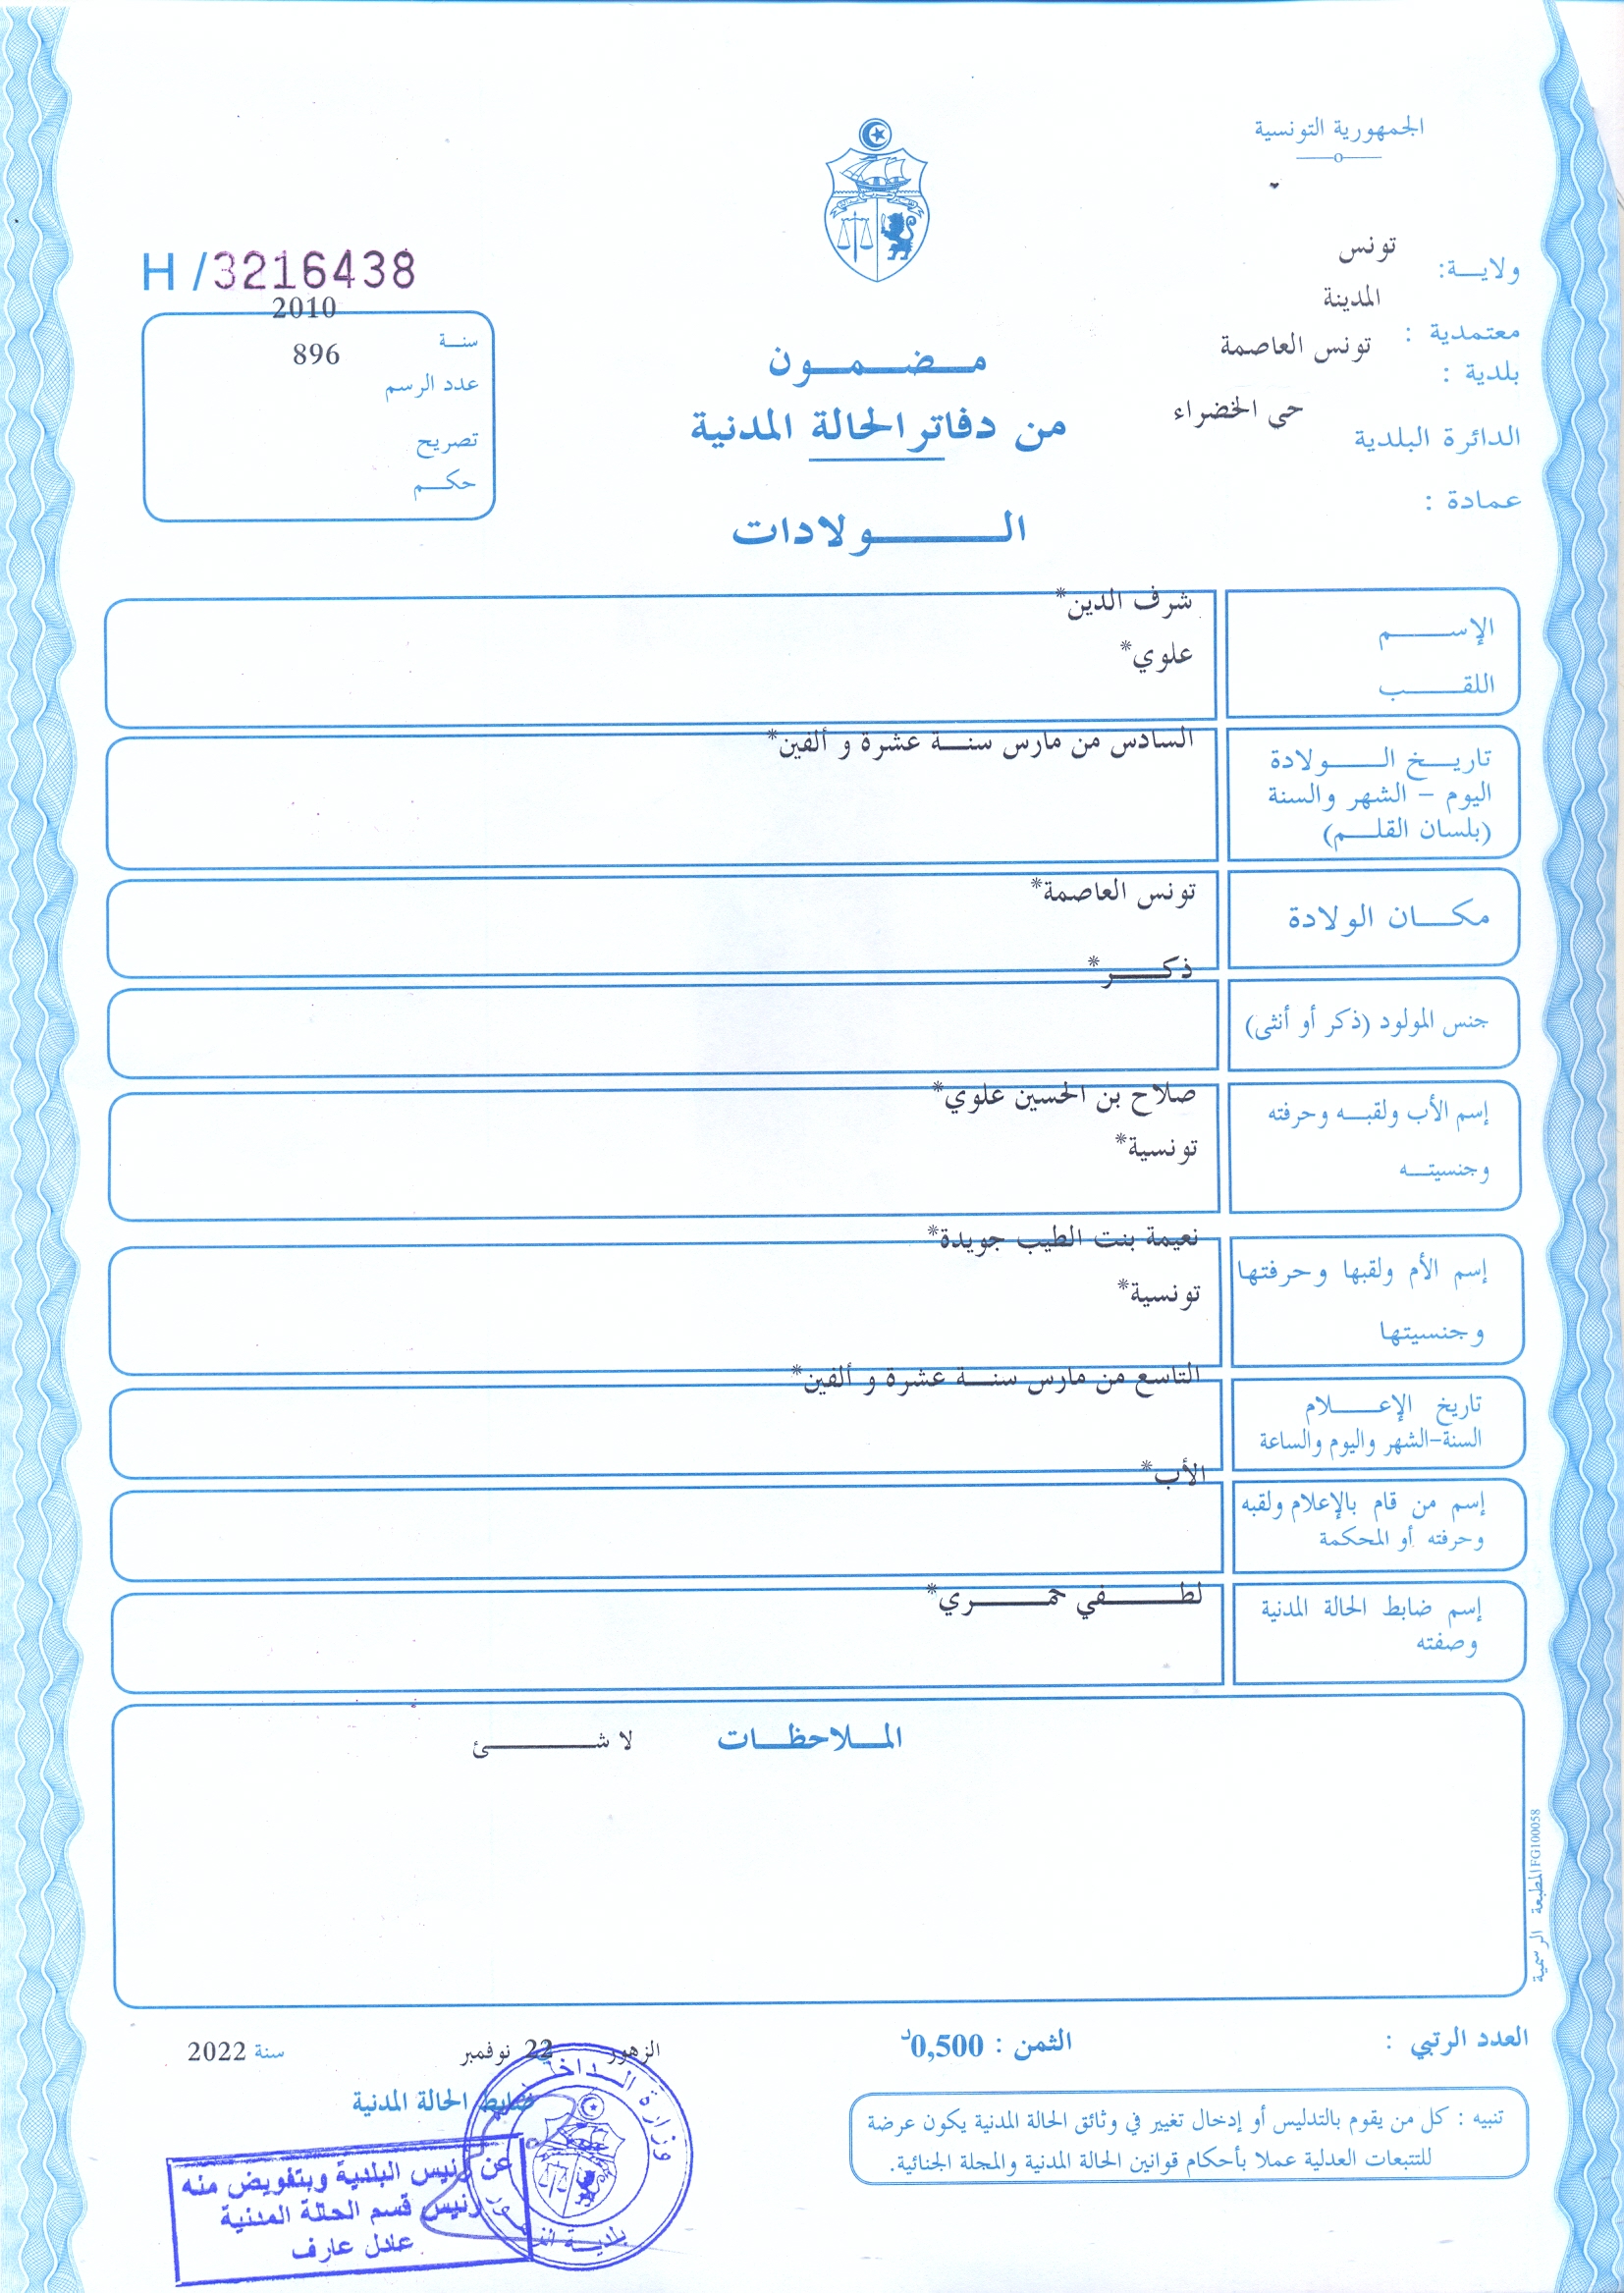 الجمهورية التونسية
ولاية: تونس
معتمدية : المدينة
بلدية : تونس العاصمة
الدائرة البلدية حي الخضراء
عمادة :
H /3216438
سنة 2010
عدد الرسم 896
تصريح
حكم
مضمون
من دفاتر الحالة المدنية
الولادات
الإسم شرف الدين*
اللقب علوي*
تاريخ الولادة السادس من مارس سنة عشرة و ألفين*
اليوم - الشهر والسنة
(بلسان القلم)
مكان الولادة تونس العاصمة*
جنس المولود (ذكر أو أنثى) ذكر*
إسم الأب ولقبه وحرفته صلاح بن الحسين علوي*
وجنسيته تونسية*
إسم الأم ولقبها وحرفتها نعيمة بنت الطيب جويدة*
وجنسيتها تونسية*
تاريخ الإعلام التاسع من مارس سنة عشرة و ألفين*
السنة-الشهر واليوم والساعة
إسم من قام بالإعلام ولقبه الأب*
وحرفته أو المحكمة
إسم ضابط الحالة المدنية لطفي حمري*
وصفته
الملاحظات لا شئ
المطبعة الرسمية FG100058
العدد الرتبي :
الثمن : 0,500د
الزهور 22 نوفمبر سنة 2022
ضابط الحالة المدنية
تنبيه : كل من يقوم بالتدليس أو إدخال تغيير في وثائق الحالة المدنية يكون عرضة
للتتبعات العدلية عملا بأحكام قوانين الحالة المدنية والمجلة الجنائية.
وزارة الداخلية
بلدية
عن رئيس البلدية وبتفويض منه
رئيس قسم الحالة المدنية
عادل عارف